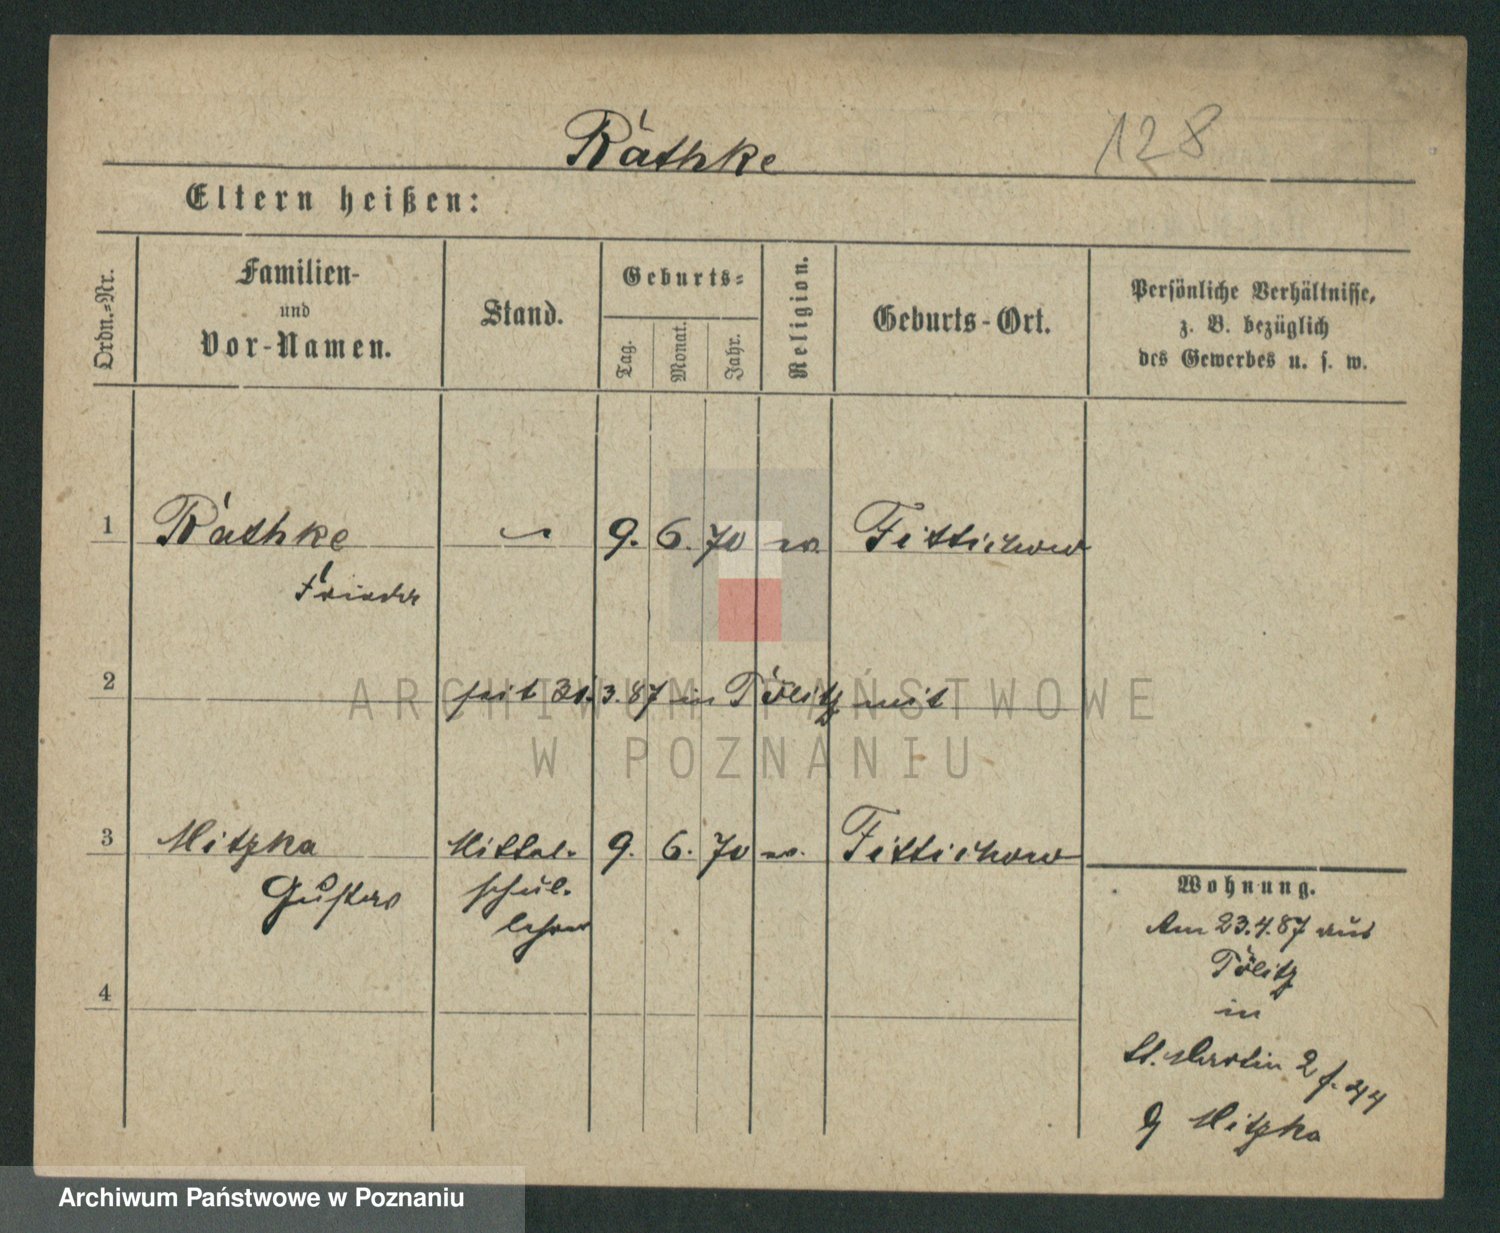 Räthke
128
Eltern heißen:
Ordn.=Nr.
Familien-
und
Vor-Namen.
Stand.
Geburts=
Tag.
Monat.
Jahr.
Religion.
Geburts-Ort.
Persönliche Verhältnisse,
z. B. bezüglich
des Gewerbes u. s. w.
1 Räthke 9. 6. 70 ev. Fittichow
2 seit 31.3.87 in Pölitz mit
3 Mitzka Mittel- 9. 6. 70 ev. Fittichow
Gustav schul-
lehrer
4
Wohnung.
Am 23.4.87 aus
Pölitz
in
St. Martin 2 f. 44
Mitzka
ARCHIWUM PAŃSTWOWE
W POZNANIU
Archiwum Państwowe w Poznaniu